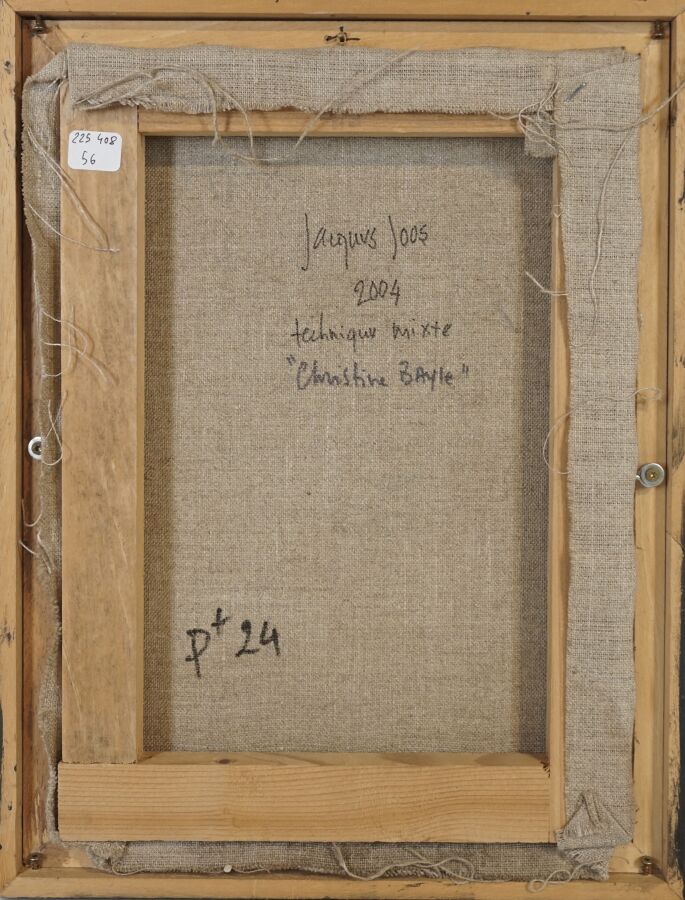 225 408
56
Jacques Joos
2004
technique mixte
"Christine BAyle"
P+ 24